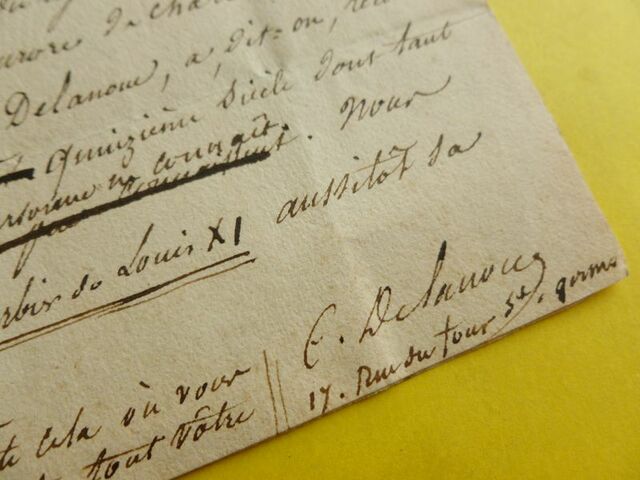 aurore de Char
Delanoue, a, dit=on, re
quinzième Siècle dont tant
personne ne connait. Nous
rbier de Louis XI aussitôt sa
C. Delanoue
17. Rue du four St. germ
te cela où vous
tout vôtre